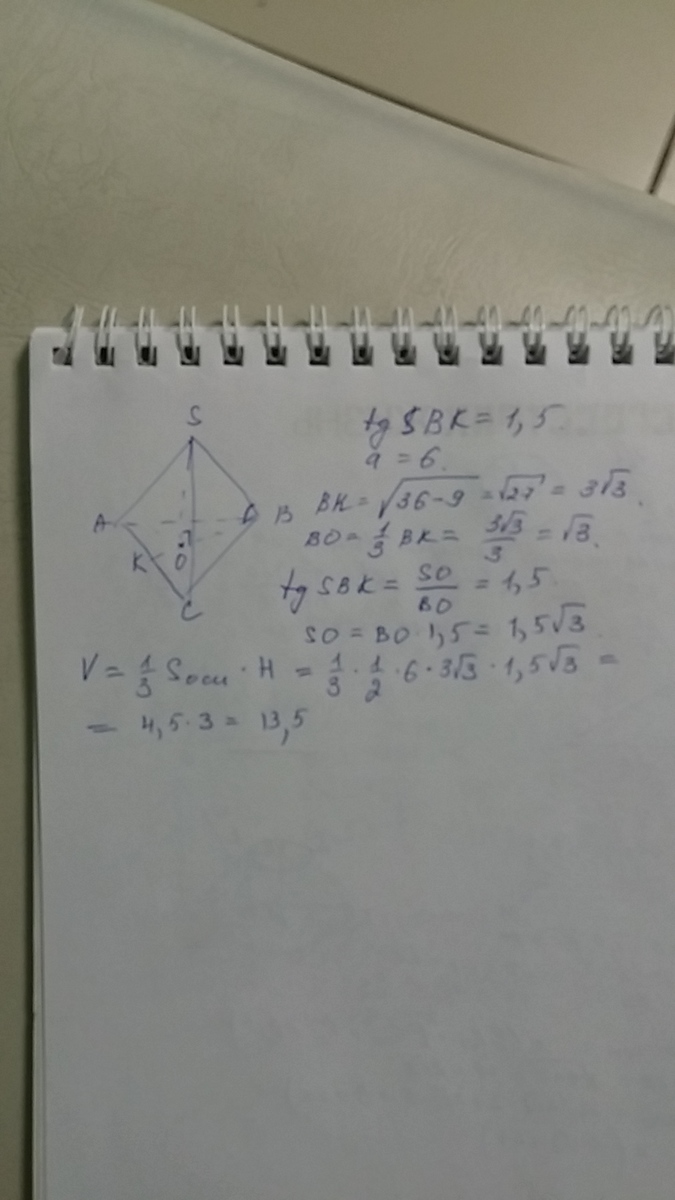 S
A
B
K
O
C
tg SBK = 1,5
a = 6.
BK = √36-9 = √27 = 3√3.
BO = 1/3 BK = 3√3/3 = √3.
tg SBK = SO/BO = 1,5
SO = BO·1,5 = 1,5√3
V = 1/3 Sосн · H = 1/3 · 1/2 · 6 · 3√3 · 1,5√3 =
= 4,5·3 = 13,5